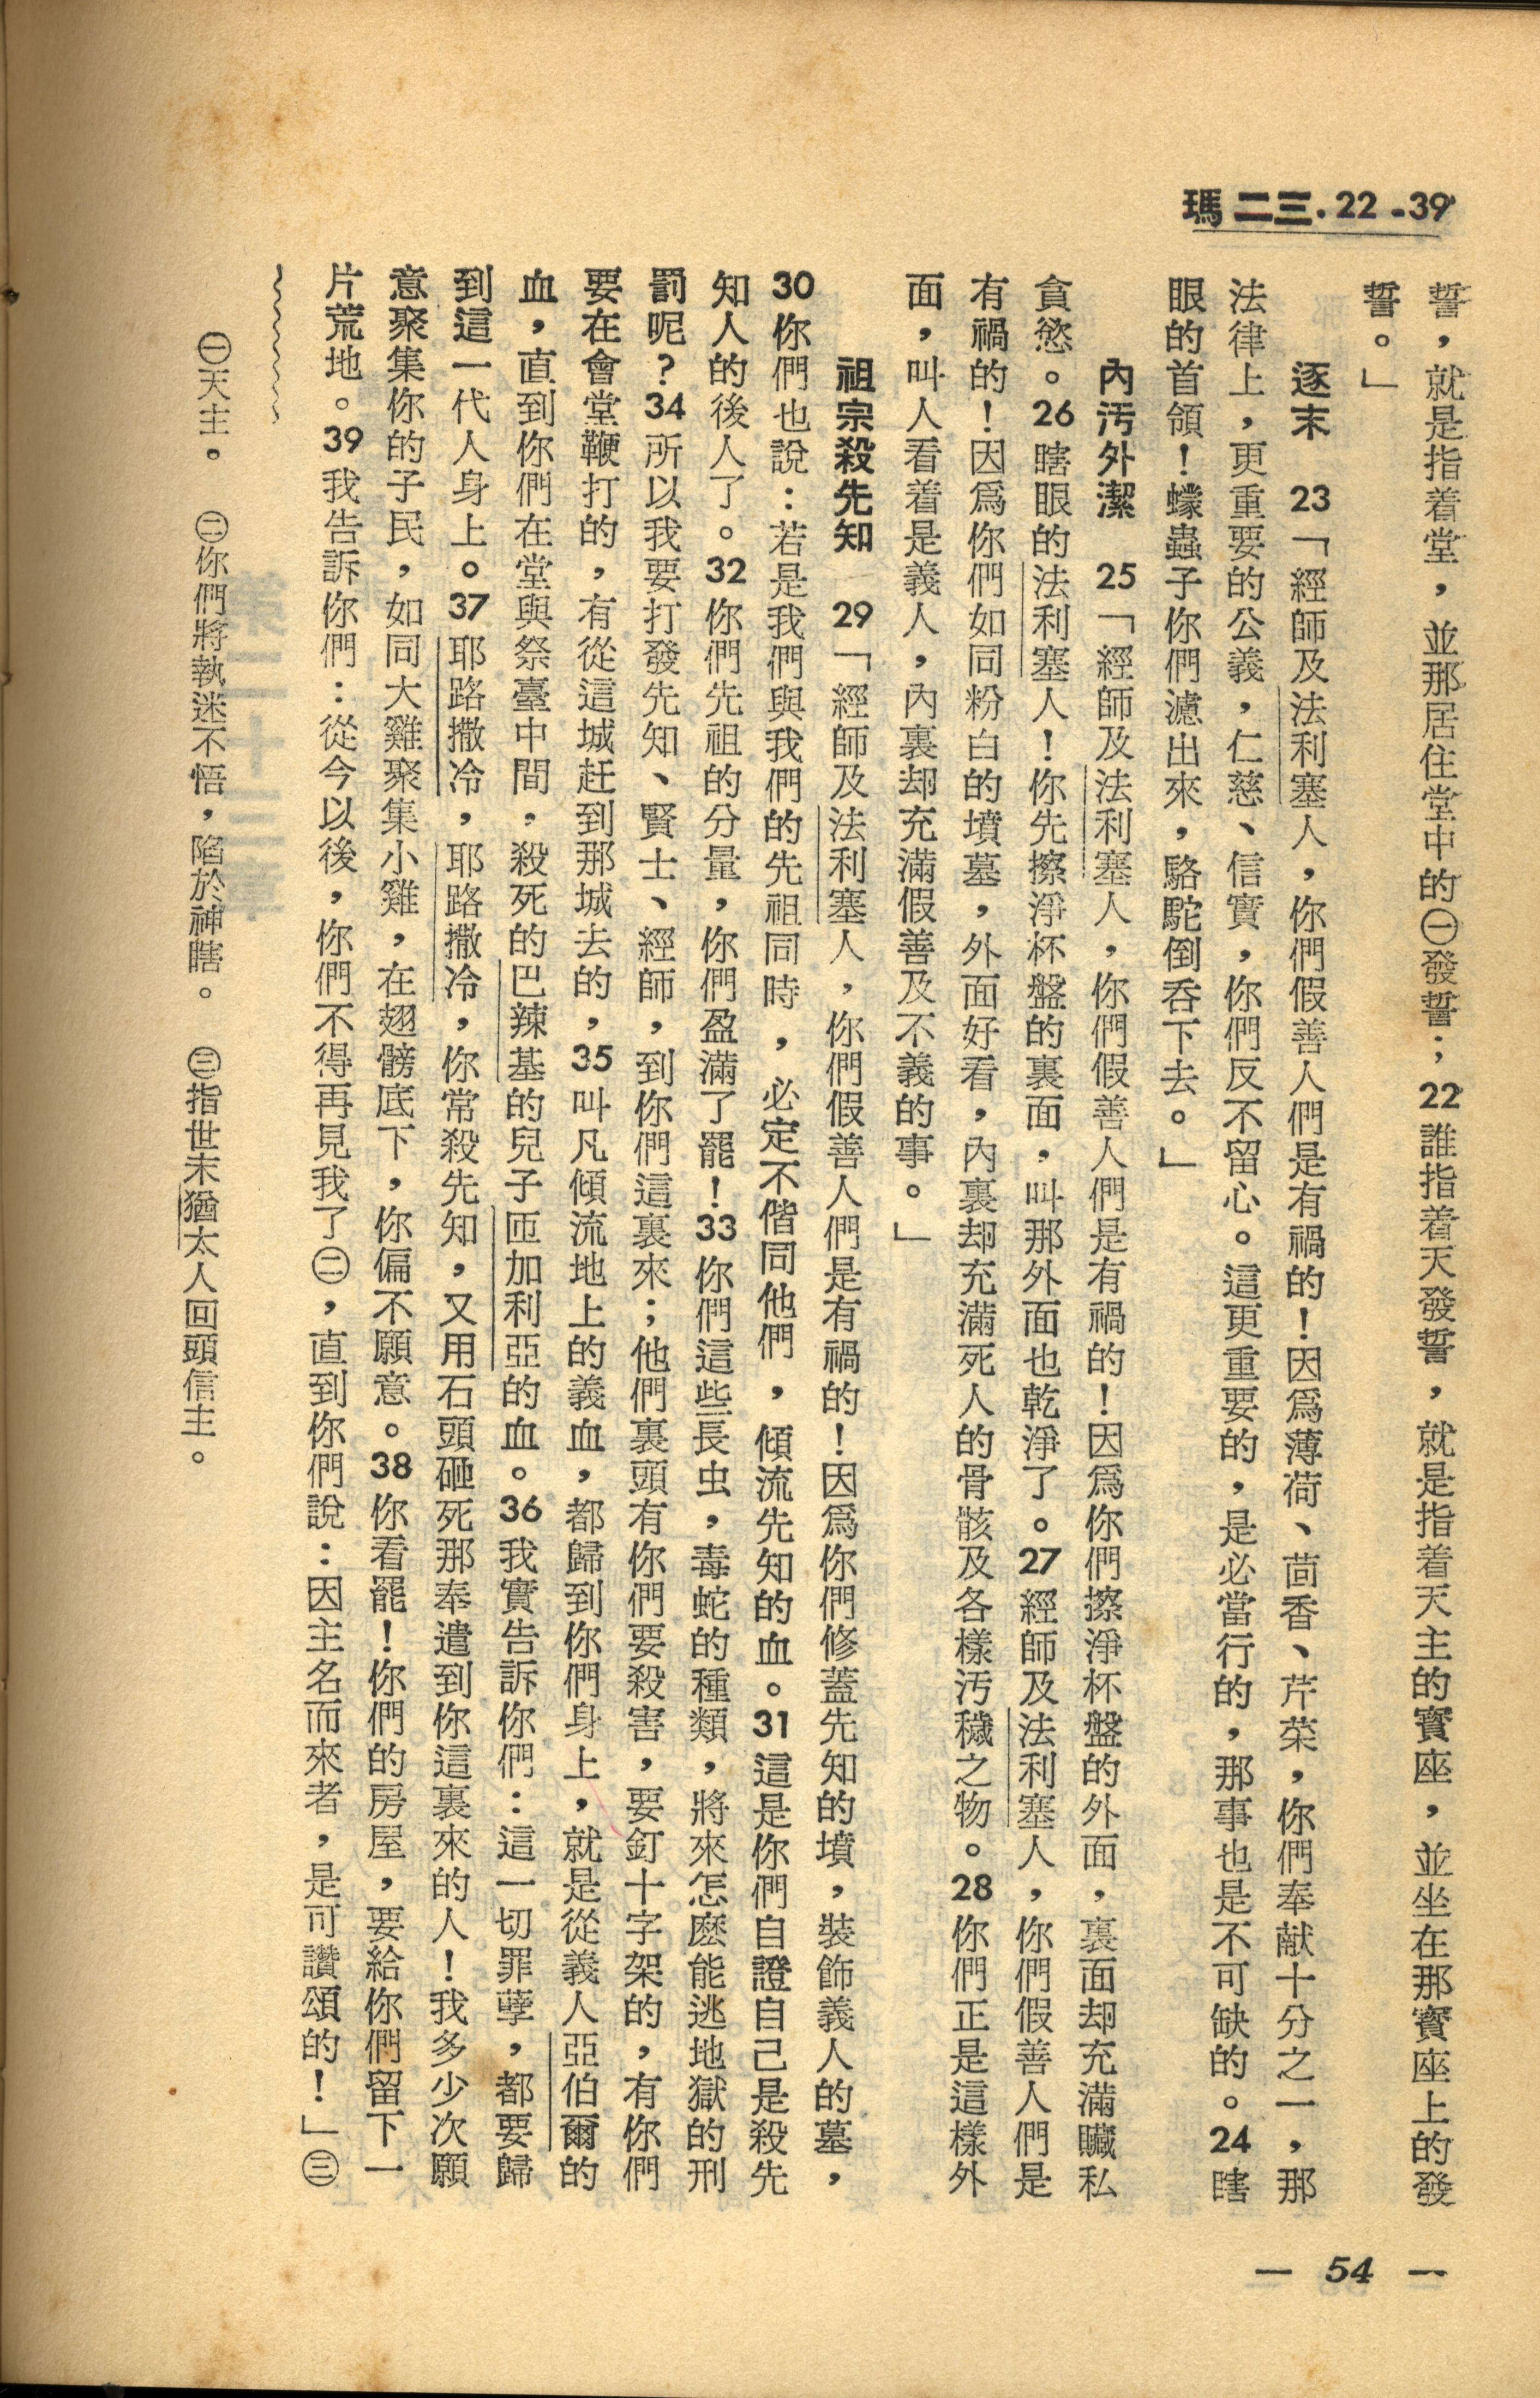 瑪二三.22-39
誓，就是指着堂，並那居住堂中的㊀發誓；22誰指着天發誓，就是指着天主的寶座，並坐在那寶座上的發
誓。」
逐末　23「經師及法利塞人，你們假善人們是有禍的！因爲薄荷、茴香、芹菜，你們奉献十分之一，那
法律上，更重要的公義，仁慈、信實，你們反不留心。這更重要的，是必當行的，那事也是不可缺的。24瞎
眼的首領！蠓蟲子你們濾出來，駱駝倒吞下去。」
內汚外潔　25「經師及法利塞人，你們假善人們是有禍的！因爲你們擦淨杯盤的外面，裏面却充滿贓私
貪慾。26瞎眼的法利塞人！你先擦淨杯盤的裏面，叫那外面也乾淨了。27經師及法利塞人，你們假善人們是
有禍的！因爲你們如同粉白的墳墓，外面好看，內裏却充滿死人的骨骸及各樣汚穢之物。28你們正是這樣外
面，叫人看着是義人，內裏却充滿假善及不義的事。」
祖宗殺先知　29「經師及法利塞人，你們假善人們是有禍的！因爲你們修蓋先知的墳，裝飾義人的墓，
30你們也說：若是我們與我們的先祖同時，必定不偕同他們，傾流先知的血。31這是你們自證自己是殺先
知人的後人了。32你們先祖的分量，你們盈滿了罷！33你們這些長虫，毒蛇的種類，將來怎麽能逃地獄的刑
罰呢？34所以我要打發先知、賢士、經師，到你們這裏來；他們裏頭有你們要殺害，要釘十字架的，有你們
要在會堂鞭打的，有從這城赶到那城去的，35叫凡傾流地上的義血，都歸到你們身上，就是從義人亞伯爾的
血，直到你們在堂與祭臺中間，殺死的巴辣基的兒子匝加利亞的血。36我實告訴你們：這一切罪孽，都要歸
到這一代人身上。37耶路撒冷，耶路撒冷，你常殺先知，又用石頭砸死那奉遣到你這裏來的人！我多少次願
意聚集你的子民，如同大雞聚集小雞，在翅髈底下，你偏不願意。38你看罷！你們的房屋，要給你們留下一
片荒地。39我告訴你們：從今以後，你們不得再見我了㊁，直到你們說：因主名而來者，是可讚頌的！」㊂
㊀天主。　㊁你們將執迷不悟，陷於神瞎。　㊂指世末猶太人回頭信主。
— 54 —